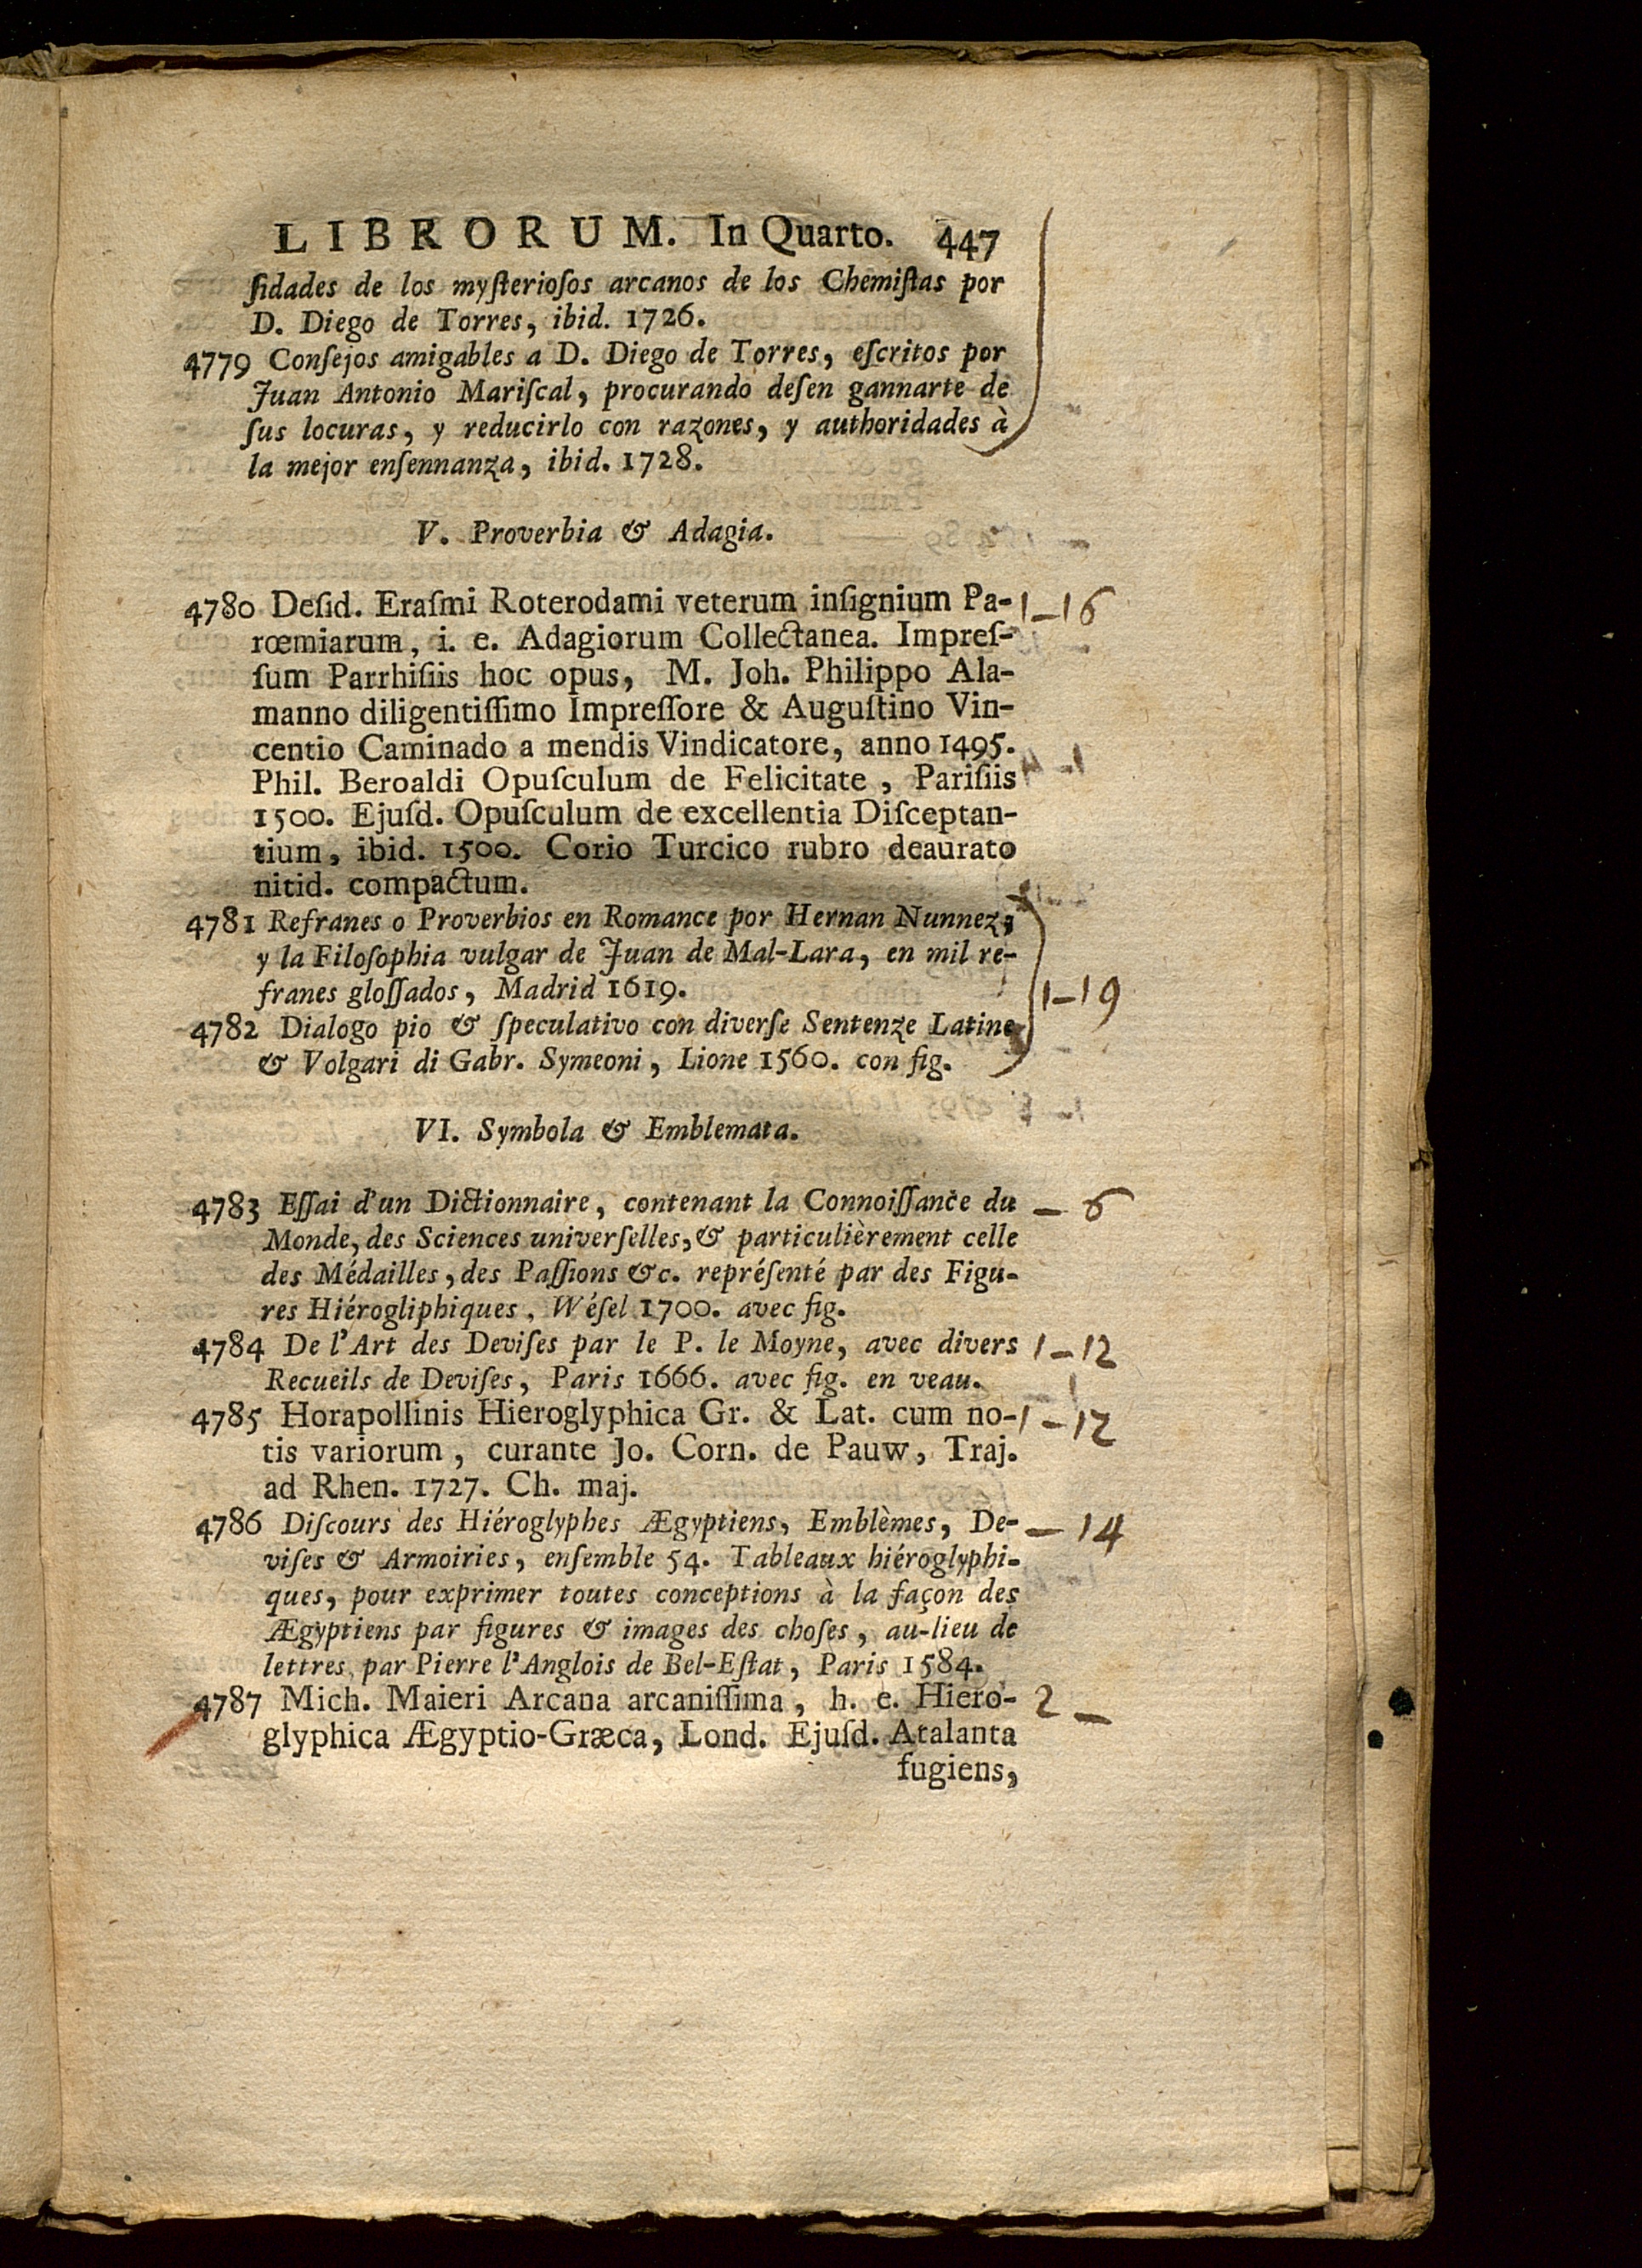 LIBRORUM. In Quarto. 447
ſidades de los myſterioſos arcanos de los Chemiſtas por
D. Diego de Torres, ibid. 1726.
4779 Conſejos amigables a D. Diego de Torres, eſcritos por
Juan Antonio Mariſcal, procurando deſen gannarte de
ſus locuras, y reducirlo con razones, y authoridades à
la mejor enſennanza, ibid. 1728.
V. Proverbia & Adagia.
4780 Deſid. Eraſmi Roterodami veterum inſignium Pa- 1-16
rœmiarum, i. e. Adagiorum Collectanea. Impreſ-
ſum Parrhiſiis hoc opus, M. Joh. Philippo Ala-
manno diligentiſſimo Impreſſore & Auguſtino Vin-
centio Caminado a mendis Vindicatore, anno 1495.
Phil. Beroaldi Opuſculum de Felicitate, Pariſiis
1500. Ejuſd. Opuſculum de excellentia Diſceptan-
tium, ibid. 1500. Corio Turcico rubro deaurato
nitid. compactum.
4781 Refranes o Proverbios en Romance por Hernan Nunnez,
y la Filoſophia vulgar de Juan de Mal-Lara, en mil re-
franes gloſſados, Madrid 1619. 1-19
4782 Dialogo pio & ſpeculativo con diverſe Sentenze Latine
& Volgari di Gabr. Symeoni, Lione 1560. con fig.
VI. Symbola & Emblemata.
4783 Eſſai d'un Dictionnaire, contenant la Connoiſſance du - 6
Monde, des Sciences univerſelles, & particulièrement celle
des Médailles, des Paſſions &c. repréſenté par des Figu-
res Hiérogliphiques, Wéſel 1700. avec fig.
4784 De l'Art des Deviſes par le P. le Moyne, avec divers 1-12
Recueils de Deviſes, Paris 1666. avec fig. en veau.
4785 Horapollinis Hieroglyphica Gr. & Lat. cum no- 1-12
tis variorum, curante Jo. Corn. de Pauw, Traj.
ad Rhen. 1727. Ch. maj.
4786 Diſcours des Hiéroglyphes Ægyptiens, Emblèmes, De- - 14
viſes & Armoiries, enſemble 54. Tableaux hiéroglyphi-
ques, pour exprimer toutes conceptions à la façon des
Ægyptiens par figures & images des choſes, au-lieu de
lettres, par Pierre l'Anglois de Bel-Eſtat, Paris 1584.
4787 Mich. Maieri Arcana arcaniſſima, h. e. Hiero- 2 -
glyphica Ægyptio-Græca, Lond. Ejuſd. Atalanta
fugiens,